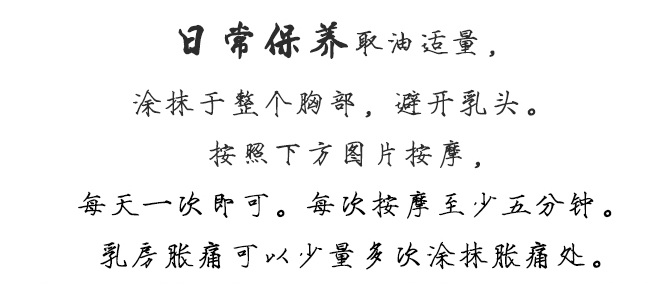 日常保养取油适量，
涂抹于整个胸部，避开乳头。
按照下方图片按摩，
每天一次即可。每次按摩至少五分钟。
乳房胀痛可以少量多次涂抹胀痛处。